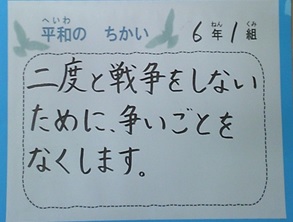 へいわ
平和の ちかい
ねん くみ
6年1組
二度と戦争をしない
ために、争いごとを
なくします。